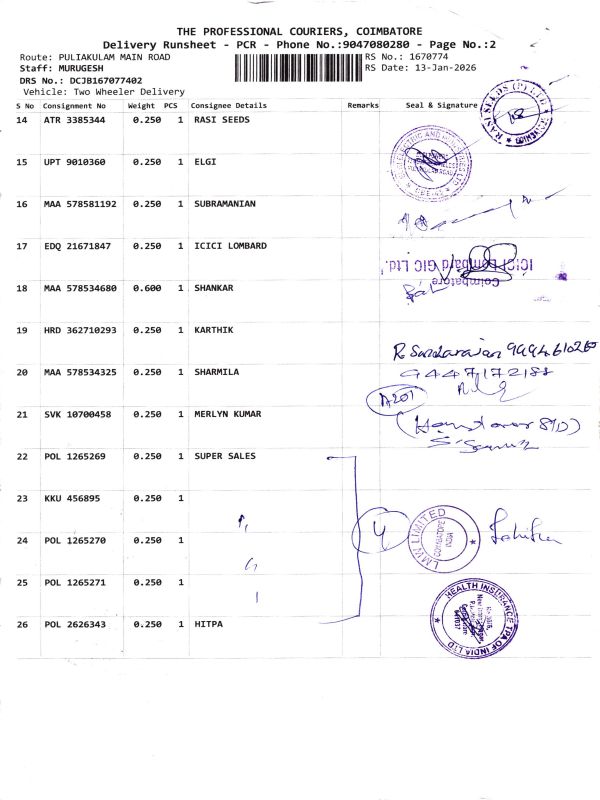 THE PROFESSIONAL COURIERS, COIMBATORE
Delivery Runsheet - PCR - Phone No.:9047080280 - Page No.:2
Route: PULIAKULAM MAIN ROAD
RS No.: 1670774
Staff: MURUGESH
RS Date: 13-Jan-2026
DRS No.: DCJB167077402
Vehicle: Two Wheeler Delivery
S No Consignment No Weight PCS Consignee Details Remarks Seal & Signature
14 ATR 3385344 0.250 1 RASI SEEDS
RASI SEEDS (P) LTD
15 UPT 9010360 0.250 1 ELGI
16 MAA 578581192 0.250 1 SUBRAMANIAN
17 EDQ 21671847 0.250 1 ICICI LOMBARD
ICICI Lombard GIC Ltd.
Coimbatore
18 MAA 578534680 0.600 1 SHANKAR
19 HRD 362710293 0.250 1 KARTHIK
R. Sundararajan 9994610265
20 MAA 578534325 0.250 1 SHARMILA
9447172188
A201
21 SVK 10700458 0.250 1 MERLYN KUMAR
22 POL 1265269 0.250 1 SUPER SALES
23 KKU 456895 0.250 1
4
LMW LIMITED
COIMBATORE
INDIA
24 POL 1265270 0.250 1
25 POL 1265271 0.250 1
26 POL 2626343 0.250 1 HITPA
HEALTH INSURANCE TPA OF INDIA LTD